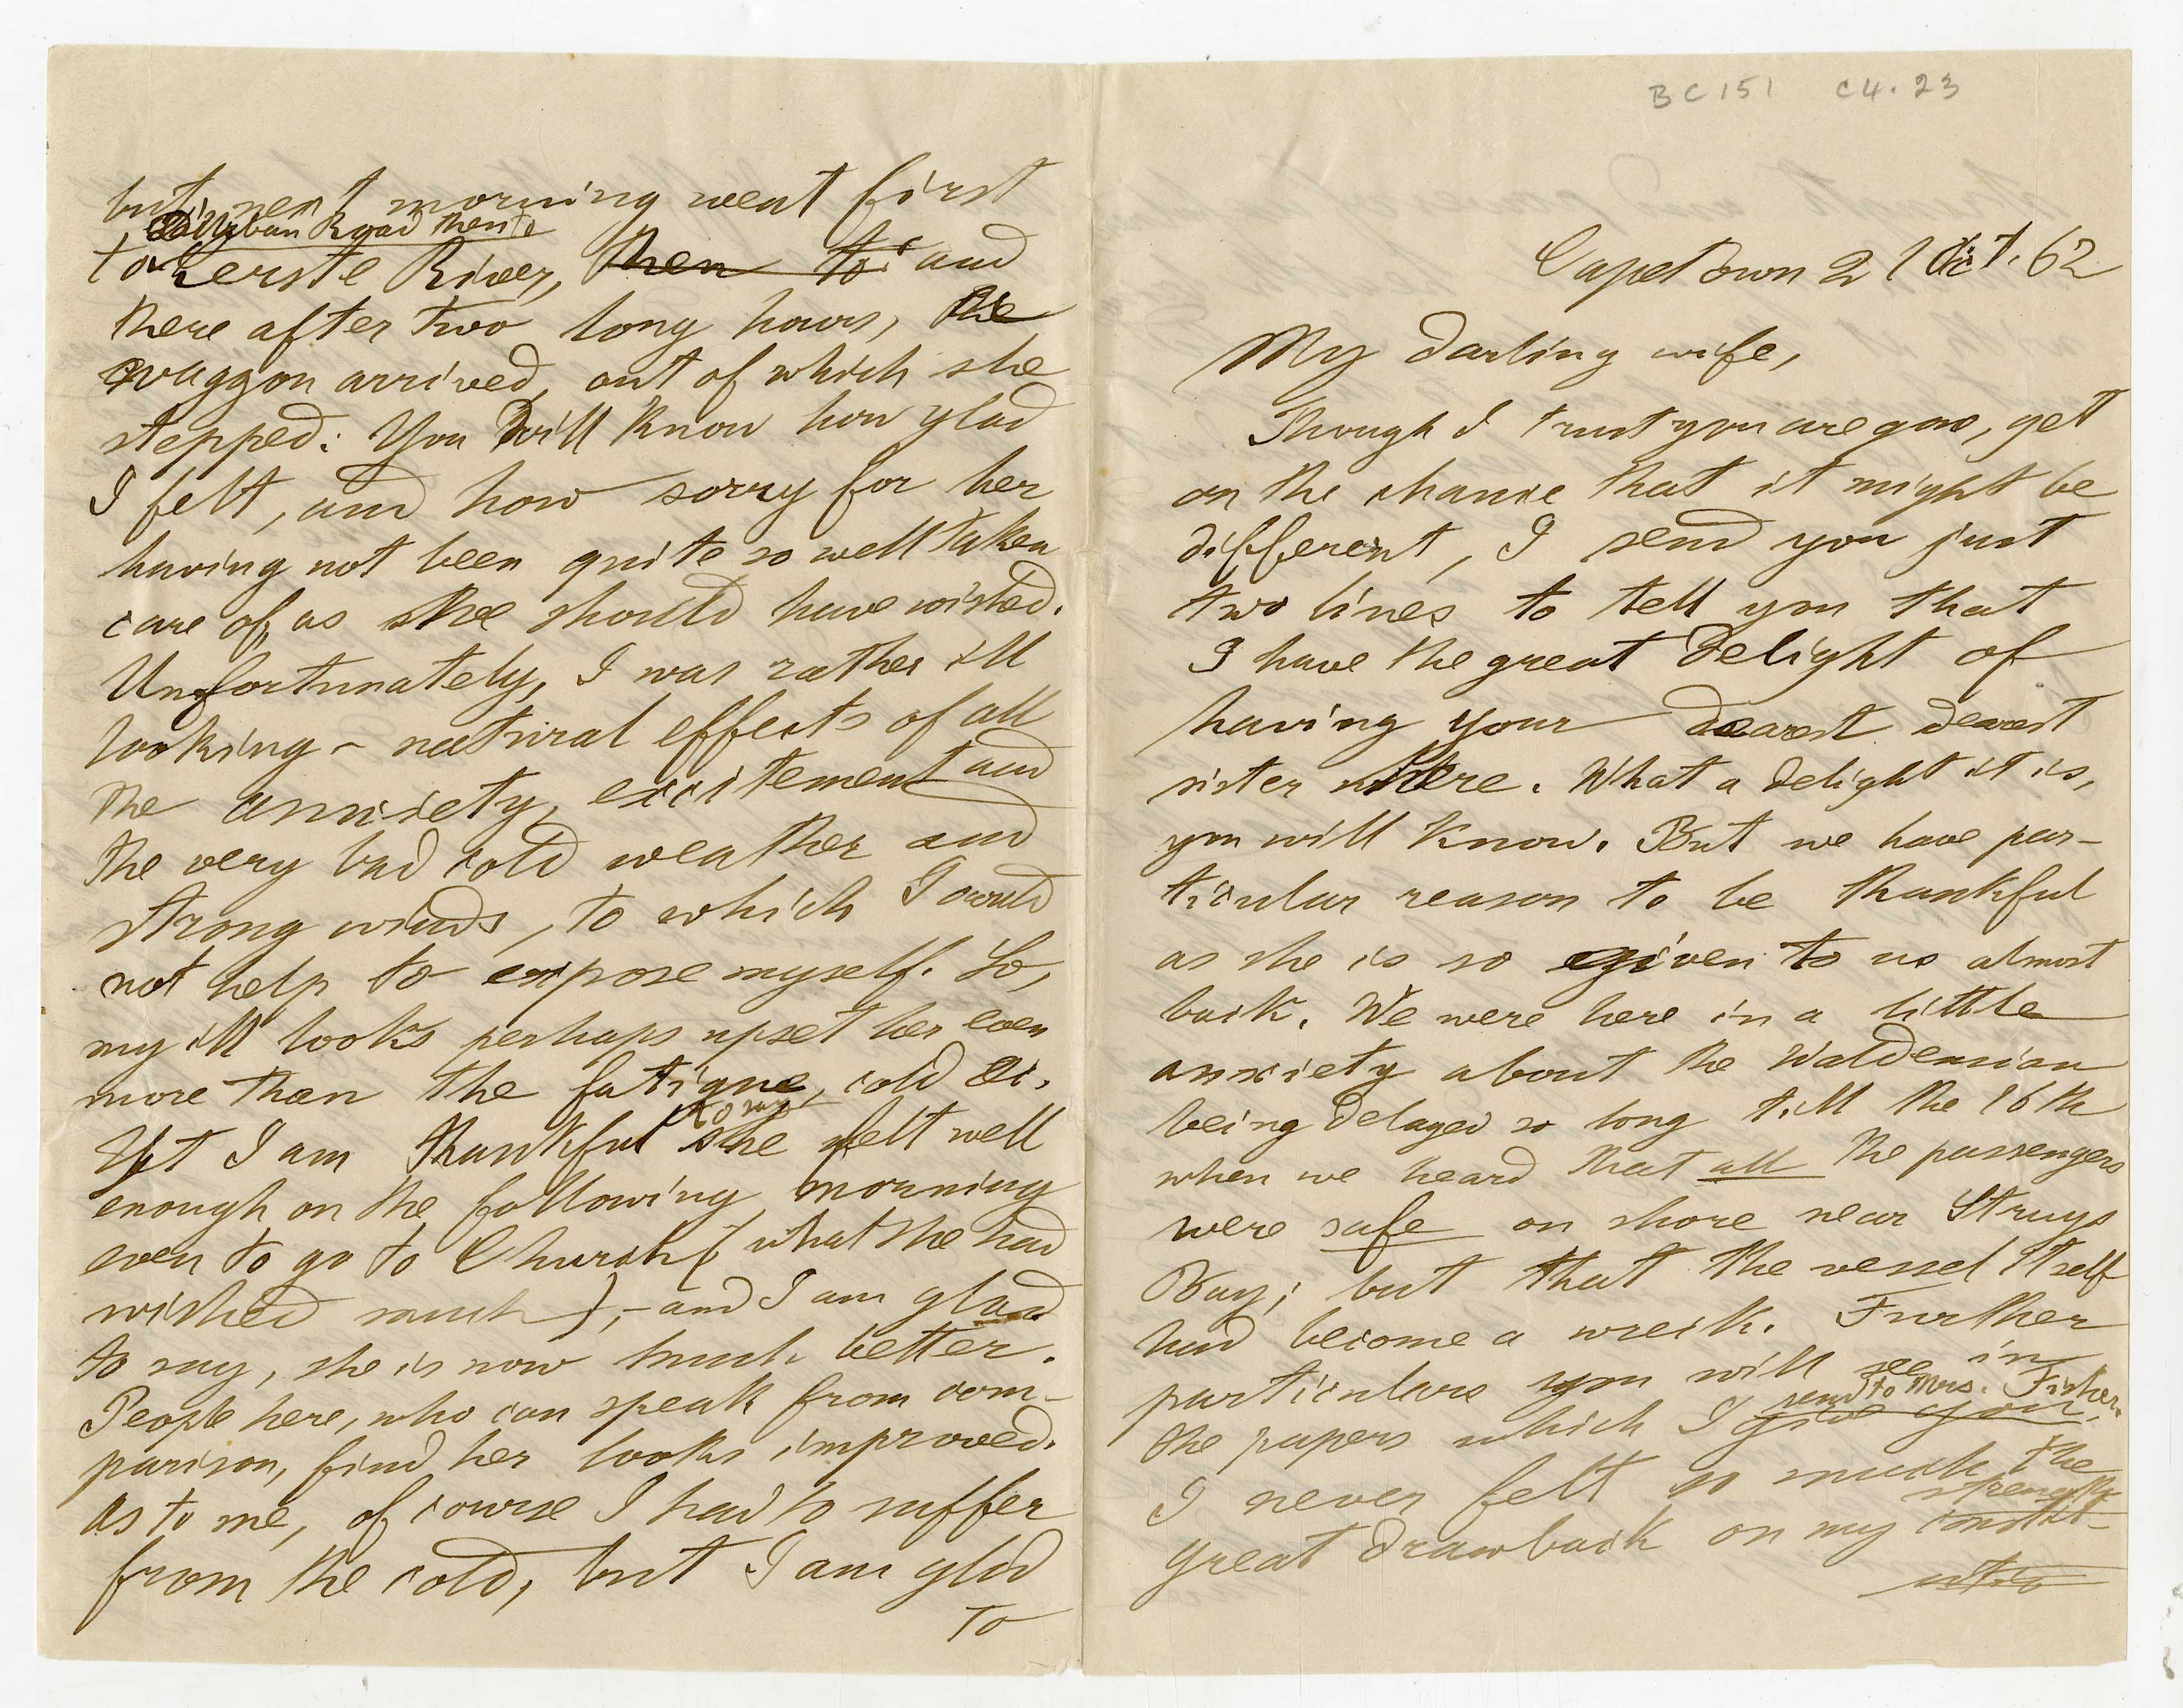 BC 151 C4.23
Capetown 21 Oct. 62
My darling wife,
Though I trust you are gone, yet
on the chance that it might be
different, I send you just
two lines to tell you that
I have the great delight of
having your dearest dearest
sister here. What a delight it is,
you will know. But we have par-
ticular reason to be thankful
as she is so given to us almost
back. We were here in a little
anxiety about the Waldensian
being delayed so long till the 16th
when we heard that all the passengers
were safe on shore near Struys
Bay; but that the vessel itself
had become a wreck. Further
particulars you will see in
send to Mrs. Fisher.
the papers which I give you.
I never felt so much the
strength
great drawback on my constit-
but next morning went first
Road then to
to Eerste River, then to and
there after two long hours, the
waggon arrived, out of which she
stepped. You will know how glad
I felt, and how sorry for her
having not been quite so well taken
care of, as she should have wished.
Unfortunately, I was rather ill
looking – natural effects of all
the anxiety, excitement and
the very bad cold weather and
strong winds, to which I could
not help to expose myself. So,
my ill looks perhaps upset her even
more than the fatigue, cold &c.
to say
Yet I am thankful she felt well
enough on the following morning
even to go to Church (what she had
wished much), – and I am glad
to say, she is now much better.
People here, who can speak from com-
parison, find her looks improved.
As to me, of course I had to suffer
from the cold, but I am glad
to